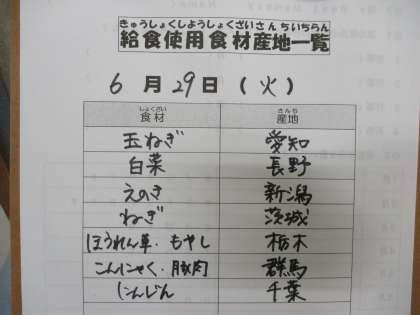 きゅうしょくしようしょくざいさんちいちらん
給食使用食材産地一覧
6月29日(火)
しょくざい さんち
食材 産地
玉ねぎ 愛知
白菜 長野
えのき 新潟
ねぎ 茨城
ほうれん草・もやし 栃木
こんにゃく・豚肉 群馬
にんじん 千葉